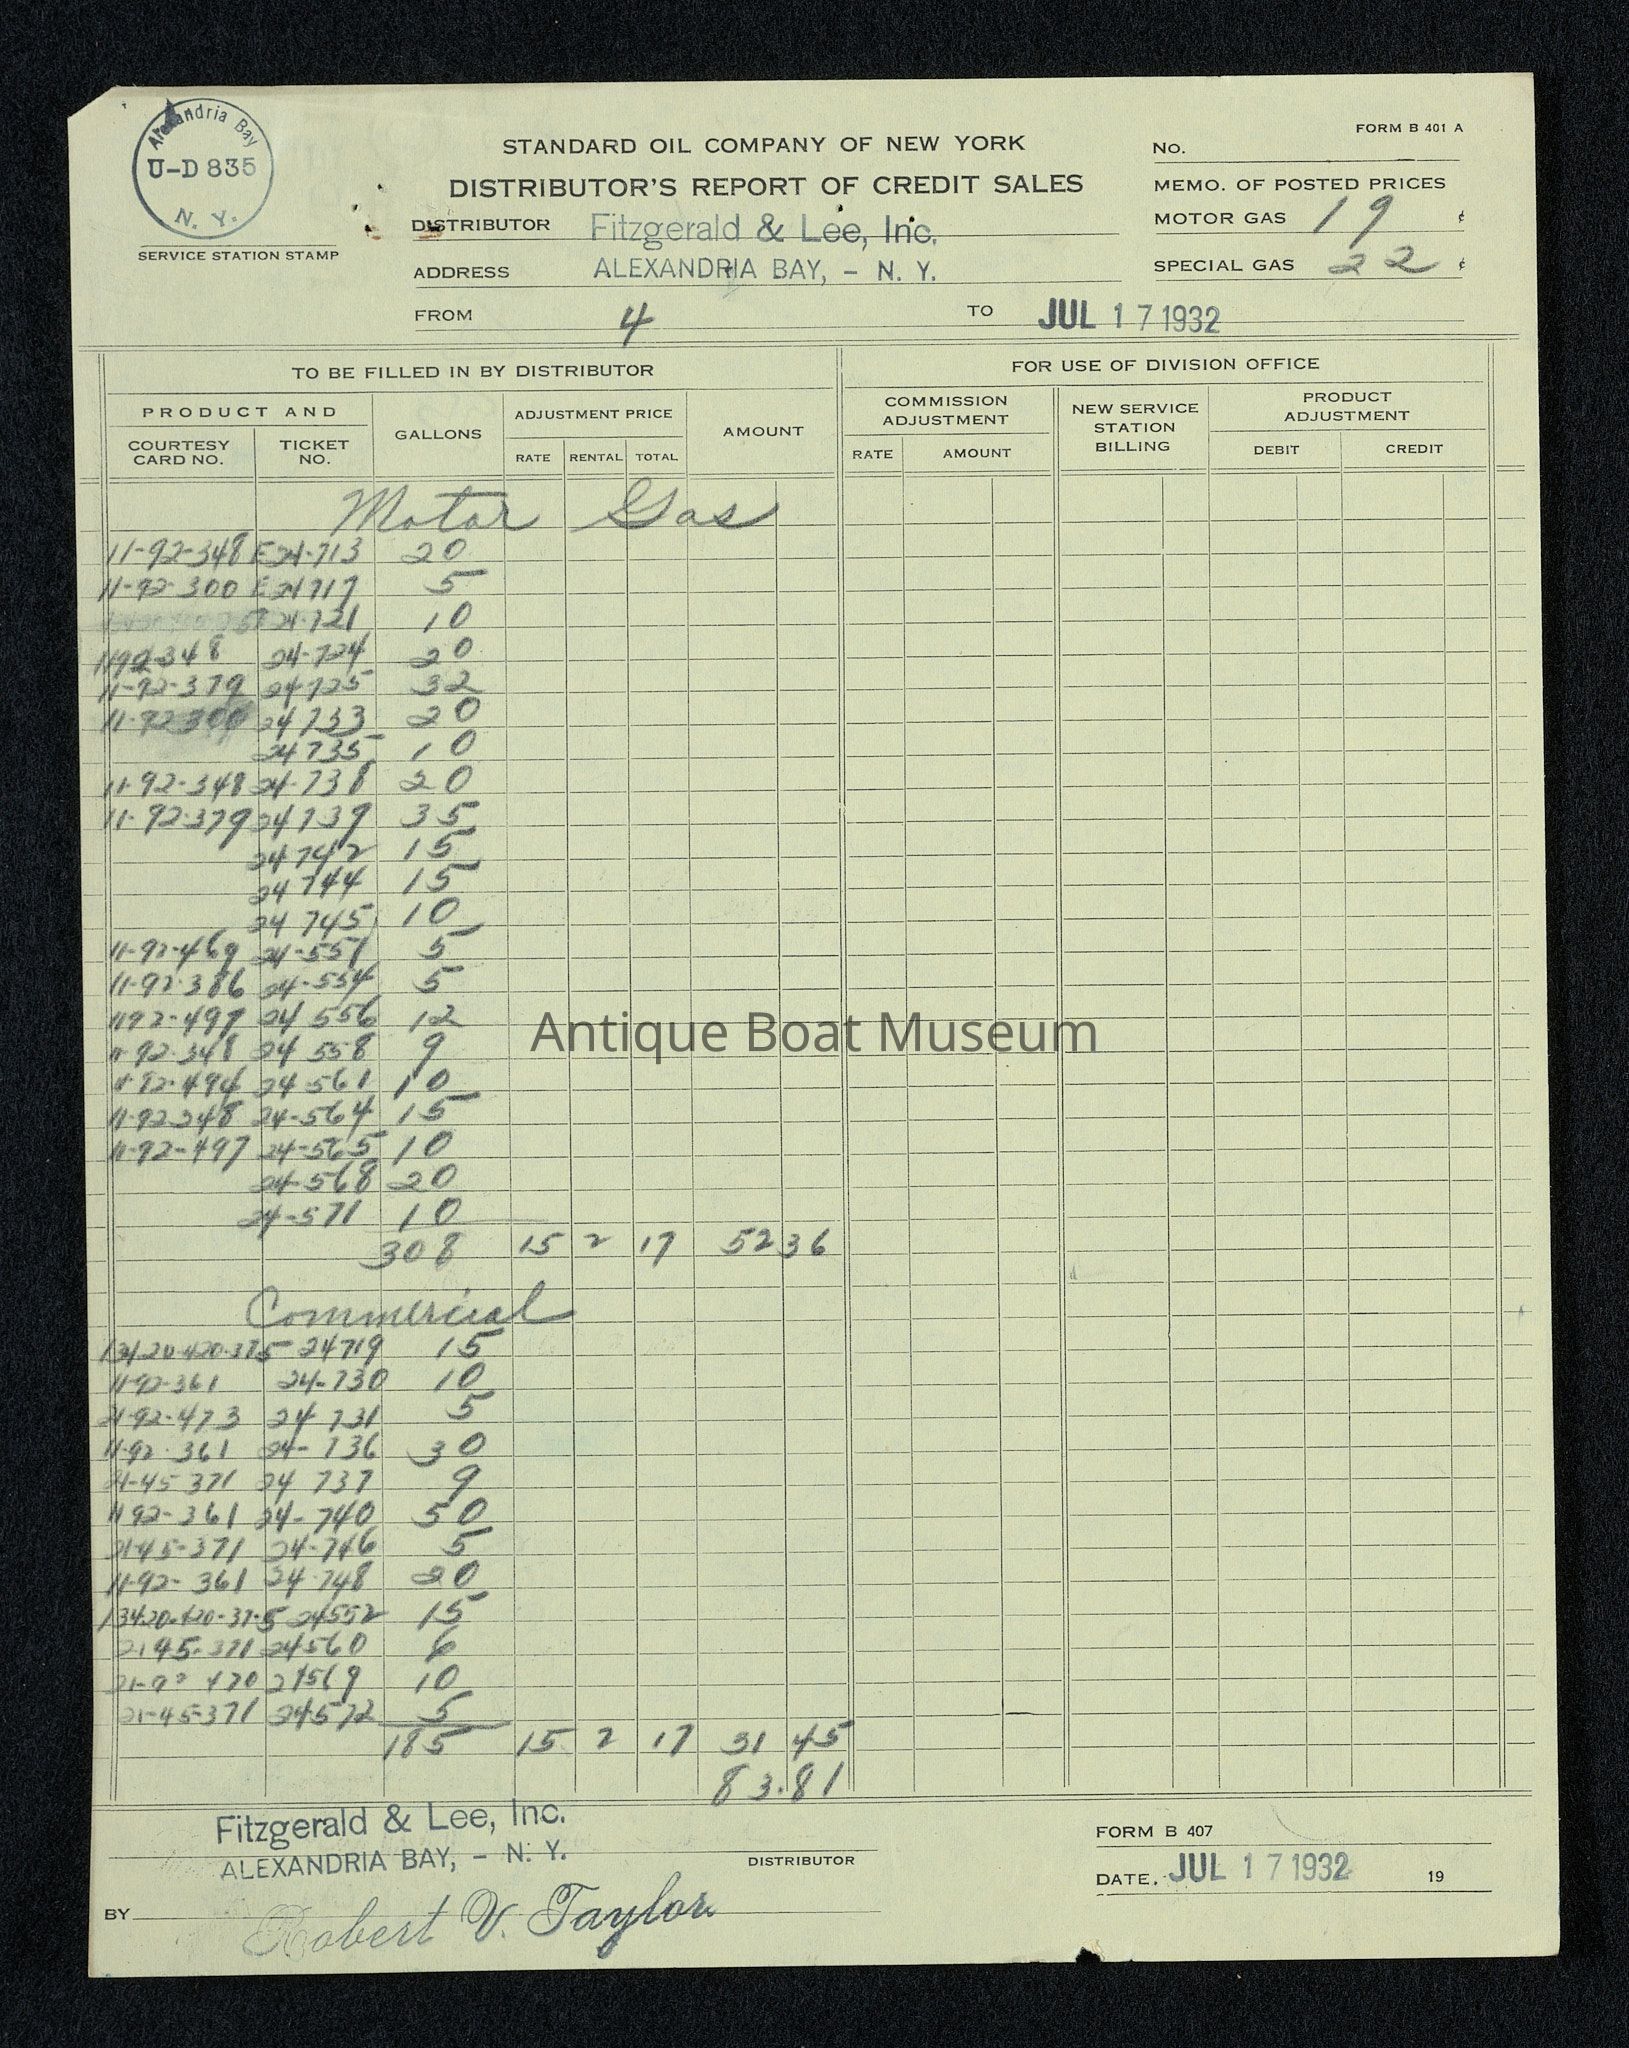 Alexandria Bay
U-D 835
N. Y.
SERVICE STATION STAMP
FORM B 401 A
STANDARD OIL COMPANY OF NEW YORK
DISTRIBUTOR'S REPORT OF CREDIT SALES
No.
MEMO. OF POSTED PRICES
MOTOR GAS 19 ¢
SPECIAL GAS 22 ¢
DISTRIBUTOR Fitzgerald & Lee, Inc.
ADDRESS ALEXANDRIA BAY, - N. Y.
FROM 4 TO JUL 17 1932
TO BE FILLED IN BY DISTRIBUTOR
FOR USE OF DIVISION OFFICE
PRODUCT AND
COURTESY CARD NO.
TICKET NO.
GALLONS
ADJUSTMENT PRICE
RATE RENTAL TOTAL
AMOUNT
COMMISSION ADJUSTMENT
RATE AMOUNT
NEW SERVICE STATION BILLING
PRODUCT ADJUSTMENT
DEBIT CREDIT
Motor Gas
11-92-348 E24-713 20
11-92-300 E24717 5
24-721 10
1192348 24-724 20
11-92-379 24-725 32
11-92300 24733 20
24735 10
11-92-348 24-738 20
11-92-379 24739 35
24742 15
24744 15
24745 10
11-92-469 24-551 5
11-92-386 24-554 5
1192-497 24556 12
11-92-348 24558 9
11-92-494 24561 10
11-92248 24-564 15
11-92-497 24-565 10
24-568 20
24-571 10
308 15 2 17 52 36
Commercial
134-20-420-375 24719 15
11-92-361 24-730 10
21-92-473 24731 5
11-92-361 24-736 30
21-45-371 24737 9
1192-361 24-740 50
21-45-371 24-746 5
11-92-361 24-748 20
13420-420-37-5 24552 15
2145-371 24560 6
24569 10
21-45-371 24572 5
185 15 2 17 31 45
83.81
Antique Boat Museum
Fitzgerald & Lee, Inc.
ALEXANDRIA BAY, - N. Y.
DISTRIBUTOR
BY Robert V. Taylor
FORM B 407
DATE. JUL 17 1932 19